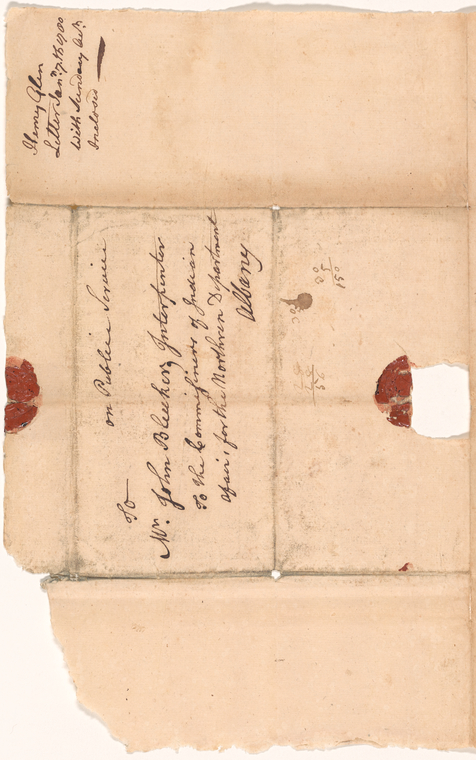 Henry Glen
Letter Jan.y 7th 1780
with Sunday Ac.ts
Inclosed
on Publick Service
To
Mr. John Bleeker, Interpreter
to the Commissiners of Indian
Afairs for the Northren Department
Albany